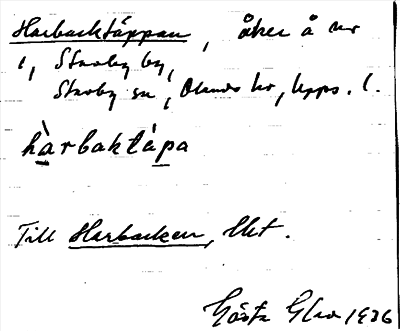 Harbacktäppan, åker å nr
1, Stavby by,
Stavby sn, Olands hd, Upps. l.
hàrbaktápa
Till Harbacken, Ekt.
Gösta 1936